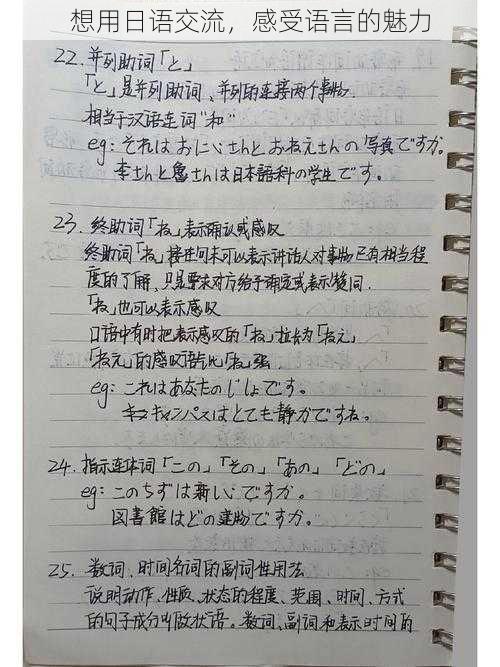 想用日语交流，感受语言的魅力
22. 并列助词「と」
「と」是并列助词、并列的连接两个事物
相当于汉语连词"和"
eg: それはおにいさんとおねえさんの写真ですか。
李さんと魯さんは日本語科の学生です。
23. 终助词「ね」表示确认或感叹
终助词「ね」接在句末可以表示讲话人对事物已有相当程
度的了解，只是要求对方给予确定或表示赞同.
「ね」也可以表示感叹
口语中有时把表示感叹的「ね」拉长为「ねえ」
「ねえ」的感叹语气比「ね」强
eg: これはあなたのじしょです。
キャンパスはとても静かですね。
24. 指示连体词「この」「その」「あの」「どの」
eg: このちずは新しいですか。
図書館はどの建物ですか。
25. 数词、时间名词的副词性用法
说明动作、性质、状态的程度、范围、时间、方式
的句子成分叫做状语。数词、副词和表示时间的